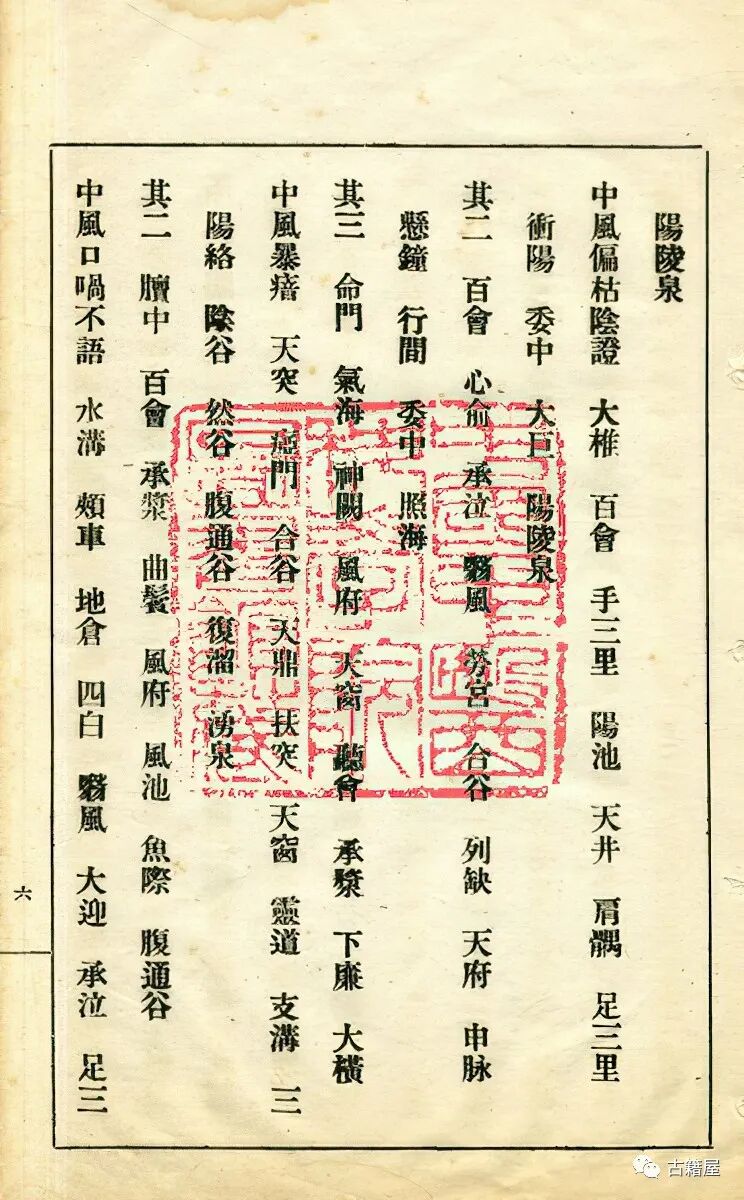 陽陵泉
中風偏枯陰證　大椎　百會　手三里　陽池　天井　肩髃　足三里
衝陽　委中　大巨　陽陵泉
其二　百會　心俞　承泣　翳風　勞宮　合谷　列缺　天府　申脉
懸鐘　行間　委中　照海
其三　命門　氣海　神闕　風府　天窗　聽會　承漿　下廉　大橫
中風暴瘖　天突　瘂門　合谷　天鼎　扶突　天窗　靈道　支溝　三
陽絡　陰谷　然谷　腹通谷　復溜　湧泉
其二　膻中　百會　承漿　曲鬢　風府　風池　魚際　腹通谷
中風口喎不語　水溝　頰車　地倉　四白　翳風　大迎　承泣　足三
六
古籍屋